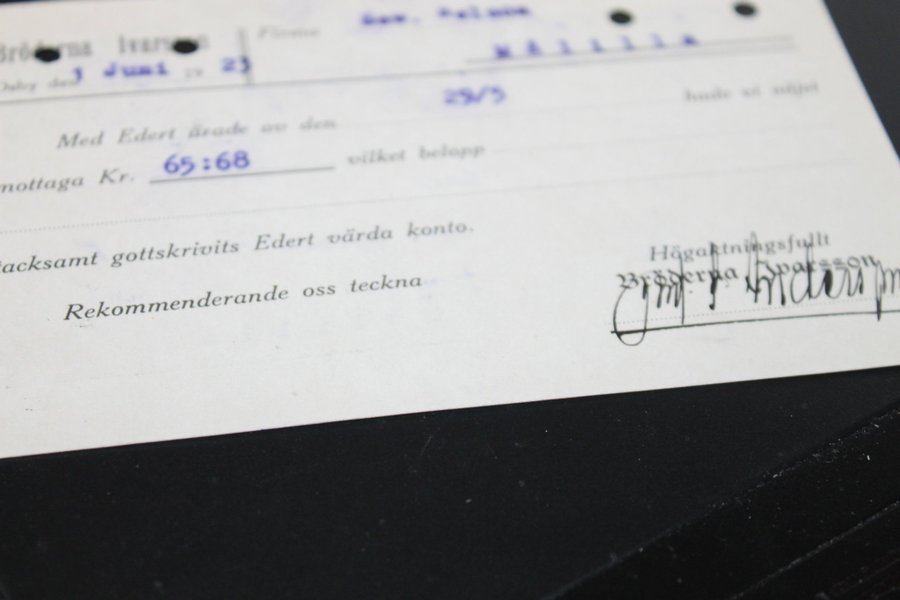 Bröderna Ivarsson Firma
3 Juni 19 23
Med Edert ärade av den 29/5 hade vi nöjet
mottaga Kr. 65:68 vilket belopp
tacksamt gottskrivits Edert värda konto.
Högaktningsfullt
Rekommenderande oss teckna Bröderna Ivarsson